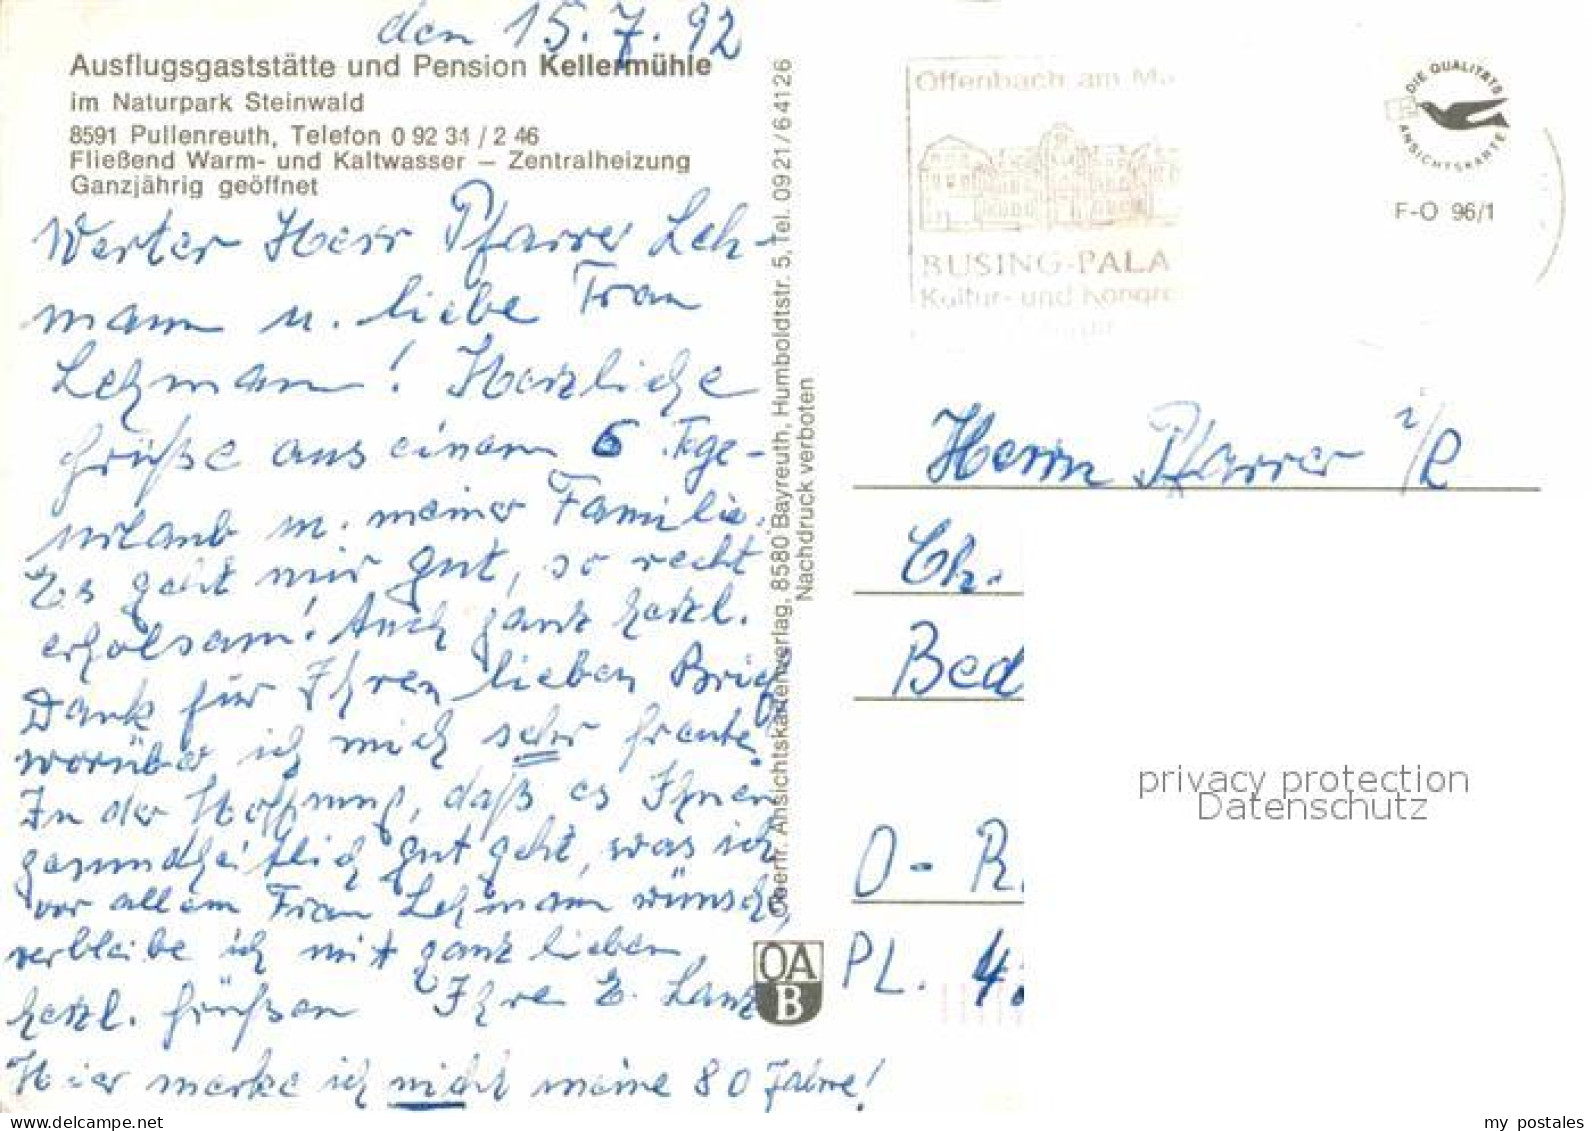 den 15.7.92
Ausflugsgaststätte und Pension Kellermühle
im Naturpark Steinwald
8591 Pullenreuth, Telefon 0 92 34 / 2 46
Fließend Warm- und Kaltwasser – Zentralheizung
Ganzjährig geöffnet
Werter Herr Pfarrer Leh-
mann u. liebe Frau
Lehmann! Herzliche
Grüße aus einem 6 Tage-
urlaub m. meiner Familie.
Es geht mir gut, so recht
erholsam! Auch ganz herzl.
Dank für Ihren lieben Brief
worüber ich mich sehr freute.
In der Hoffnung, daß es Ihnen
gesundheitlich gut geht, was ich
vor allem Frau Lehmann wünsche,
verbleibe ich mit ganz lieben
herzl. Grüßen Ihre E. Lanz
Hier merke ich nicht meine 80 Jahre!
Oberfr. Ansichtskartenverlag, 8580 Bayreuth, Humboldtstr. 5, Tel. 0921/64126
Nachdruck verboten
OA
B
Offenbach am Ma
BUSING-PALA
Kultur- und Kongre
DIE QUALITÄTS
ANSICHTSKARTE
F-O 96/1
Herrn Pfarrer i/R
Ch.
Bed
privacy protection
Datenschutz
O - R
PL. 4
my postales